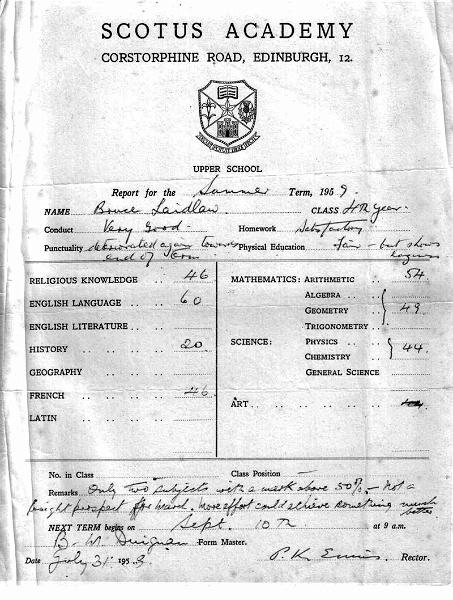 SCOTUS ACADEMY
CORSTORPHINE ROAD, EDINBURGH, 12.
UPPER SCHOOL
Report for the Summer Term, 1959.
NAME Bruce Laidlaw. CLASS 4th year.
Conduct Very Good Homework Satisfactory
Punctuality deteriorated again towards end of term Physical Education Fair - but shows
RELIGIOUS KNOWLEDGE 46
ENGLISH LANGUAGE 60
ENGLISH LITERATURE
HISTORY 20
GEOGRAPHY
FRENCH 46
LATIN
MATHEMATICS: ARITHMETIC 54
ALGEBRA
GEOMETRY 49
TRIGONOMETRY
SCIENCE: PHYSICS
CHEMISTRY 44
GENERAL SCIENCE
ART
No. in Class Class Position
Remarks Only two subjects with a mark above 50% - Not a
bright prospect. More effort could achieve something much better
NEXT TERM begins on Sept. 10th at 9 a.m.
B. W. Form Master.
Date July 31st 195 Rector.